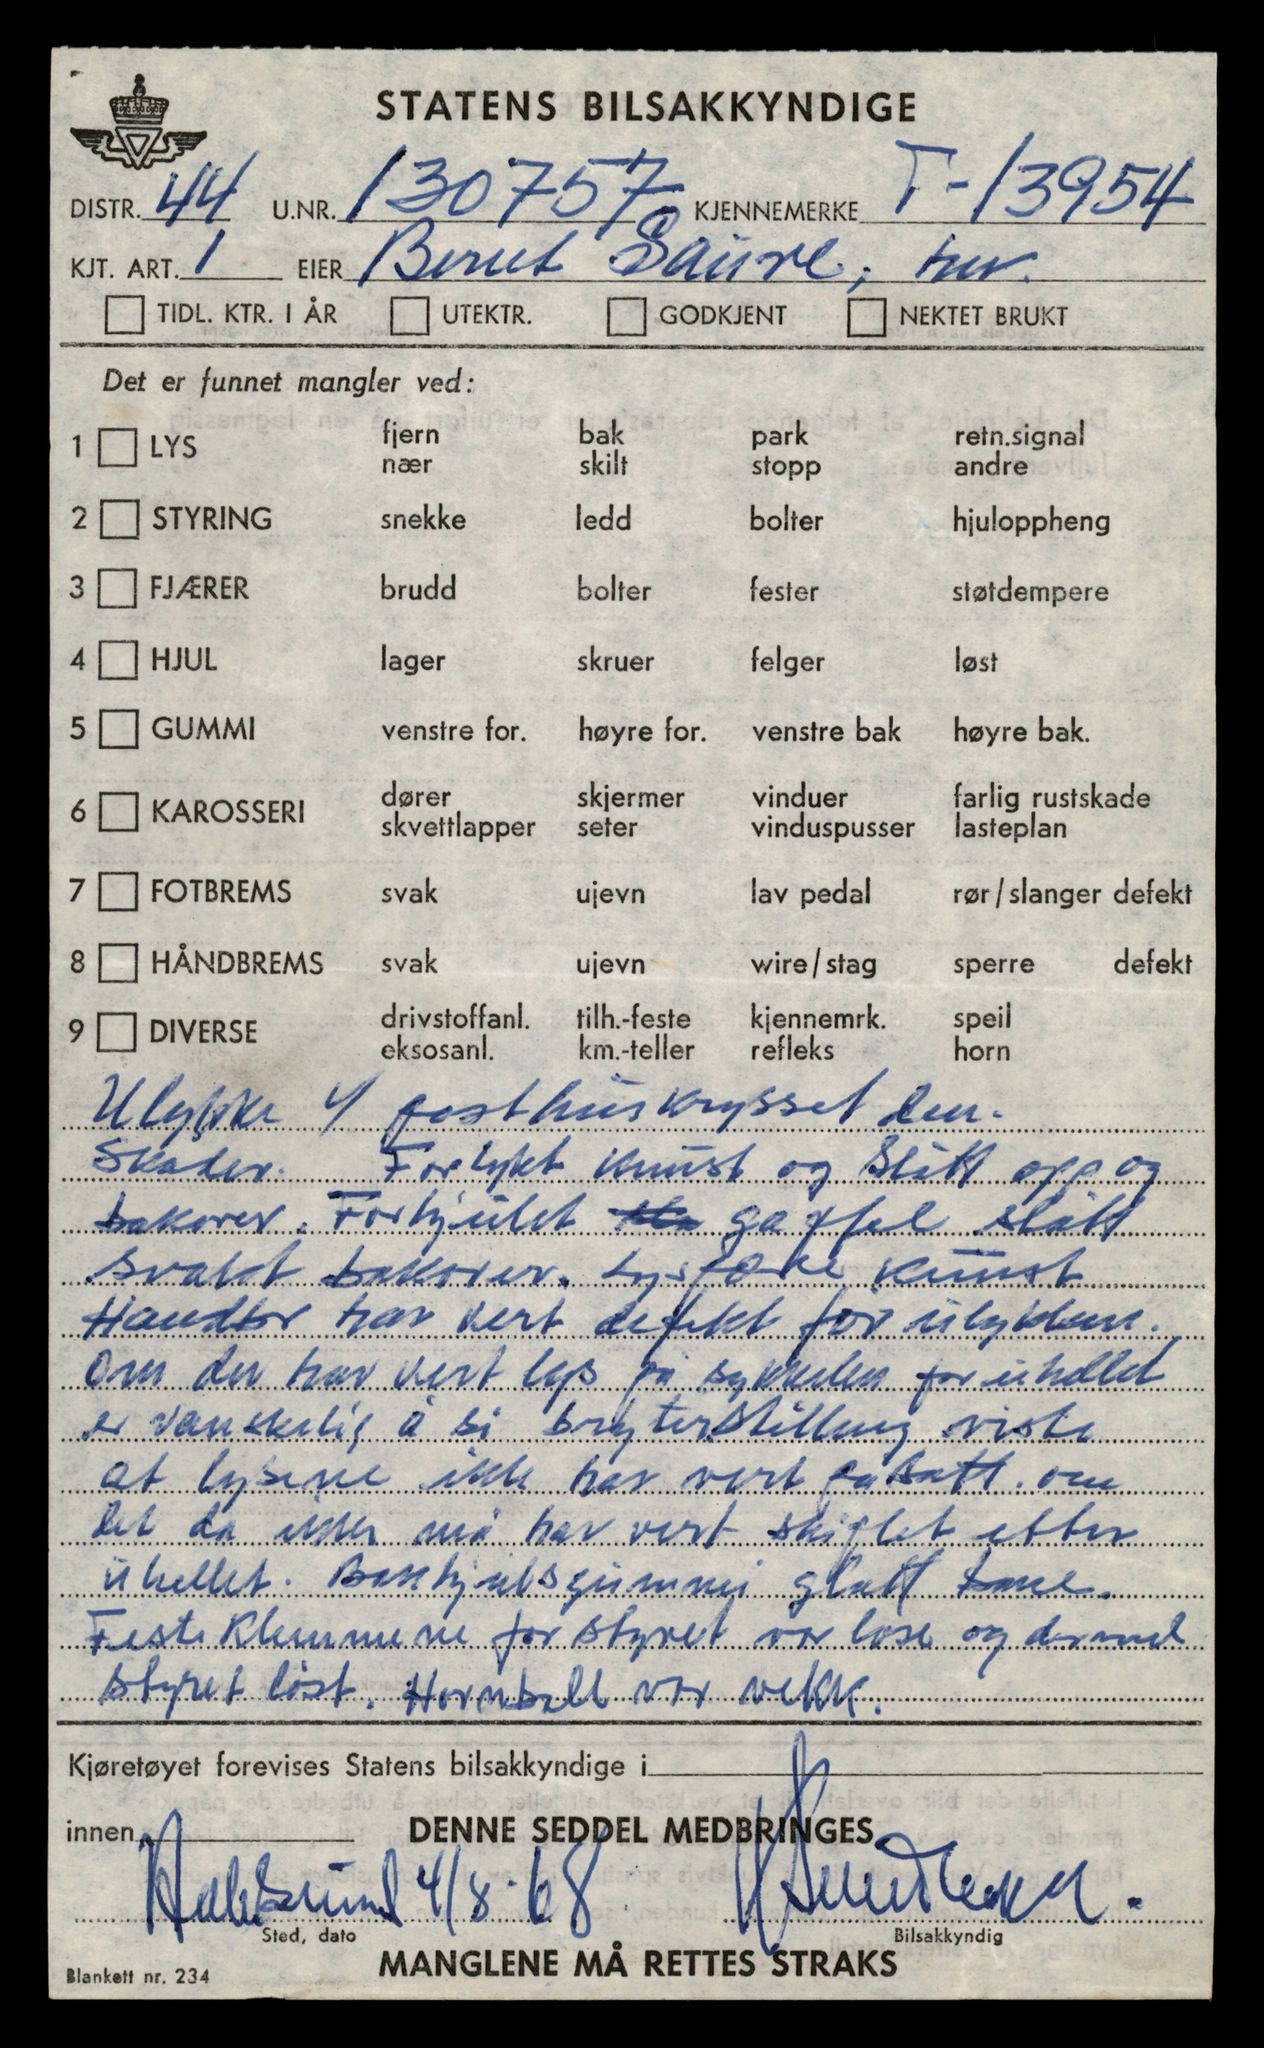 STATENS BILSAKKYNDIGE
DISTR. 44 U.NR. 130757 KJENNEMERKE T-13954
KJT. ART. 1 EIER Bernt Saure, her.
TIDL. KTR. I ÅR UTEKTR. GODKJENT NEKTET BRUKT
Det er funnet mangler ved:
1 LYS fjern bak park retn.signal
nær skilt stopp andre
2 STYRING snekke ledd bolter hjuloppheng
3 FJÆRER brudd bolter fester støtdempere
4 HJUL lager skruer felger løst
5 GUMMI venstre for. høyre for. venstre bak høyre bak.
6 KAROSSERI dører skjermer vinduer farlig rustskade
skvettlapper seter vinduspusser lasteplan
7 FOTBREMS svak ujevn lav pedal rør/slanger defekt
8 HÅNDBREMS svak ujevn wire/stag sperre defekt
9 DIVERSE drivstoffanl. tilh.-feste kjennemrk. speil
eksosanl. km.-teller refleks horn
Ulykke i posthuskrysset den.
Skader. Forlykt knust og slått opp og
bakover. Forhjulet gaffel slått
svakt bakover. Lyspære knust
har vert defekt før ulykken.
Om der har vert lys på sykkelen før uhellet
er vanskelig å si bryterstilling viste
at lysene ikke har vert påsatt. om
det da ikke må har vert skiftet etter
uhellet. Bakhjulsgummi glatt bane.
Festeklemmene for styret var løse og dermed
styret løst. Hornbell var vekk.
Kjøretøyet forevises Statens bilsakkyndige i
innen DENNE SEDDEL MEDBRINGES
4/8-68
Sted, dato Bilsakkyndig
MANGLENE MÅ RETTES STRAKS
Blankett nr. 234